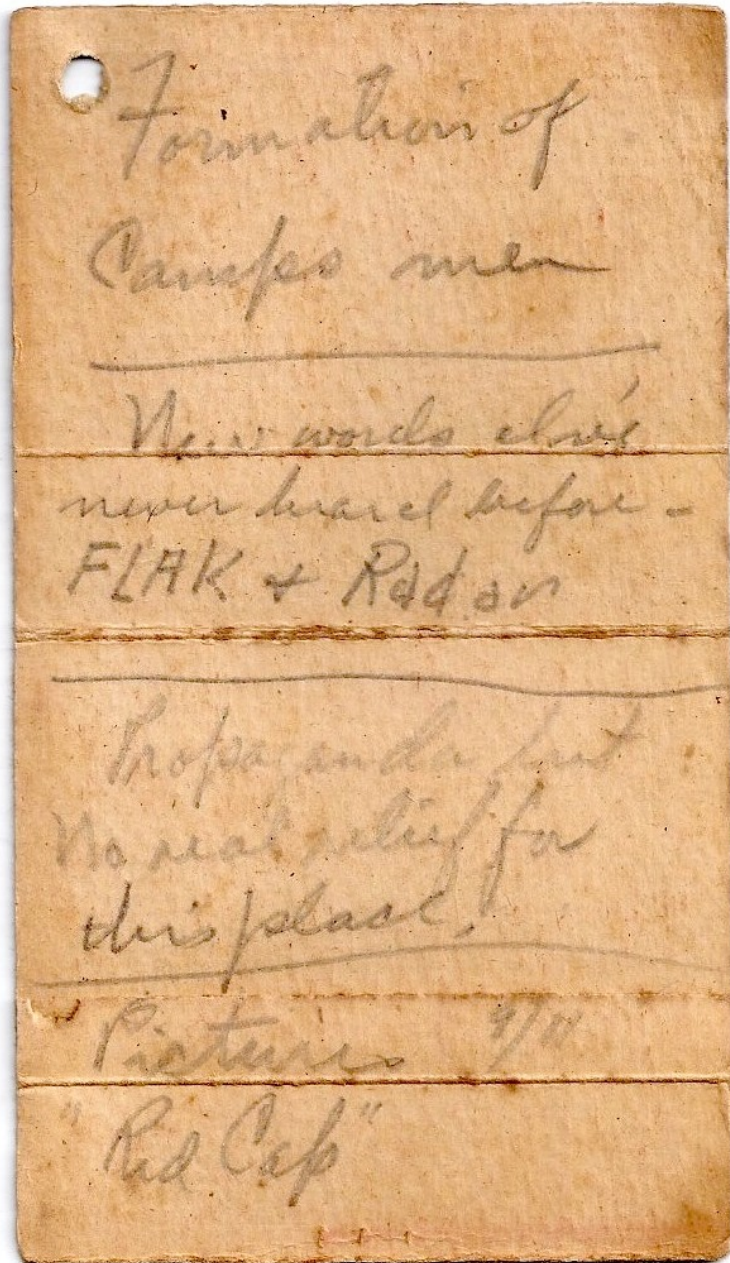 Formation of
Camps men
New words I've
never heard before -
FLAK & Radar
Propaganda but
No real relief for
this place.
Pictures 9/11
"Red Cap"